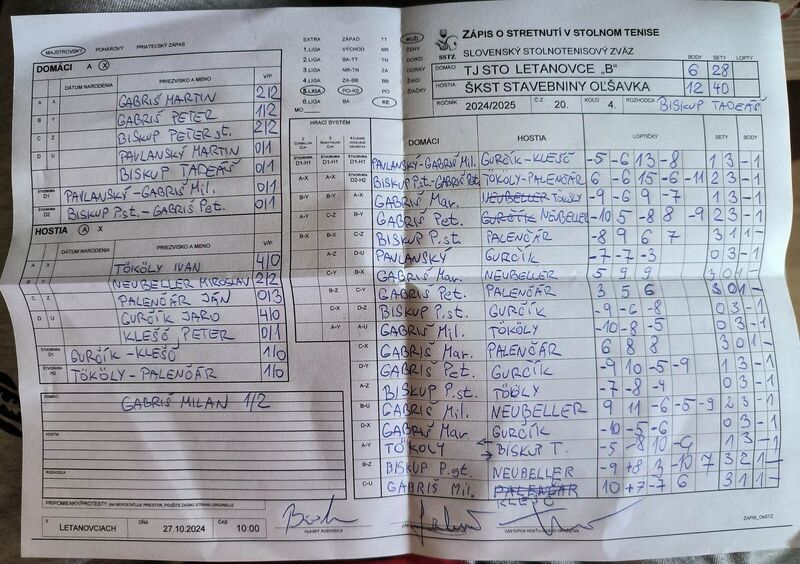 MAJSTROVSKÝ POHÁROVÝ PRIATEĽSKÝ ZÁPAS
DOMÁCI A X
DÁTUM NARODENIA PRIEZVISKO A MENO V/P
A X GABRIŠ MARTIN 2/2
B Y GABRIŠ PETER 1/2
C Z BISKUP PETER st. 2/2
D U PAVLANSKÝ MARTIN 0/1
BISKUP TADEÁŠ 0/1
ŠTVORHRA D1 PAVLANSKÝ-GABRIŠ Mil. 0/1
ŠTVORHRA D2 BISKUP P.st.-GABRIŠ Pet. 0/1
HOSTIA A X
DÁTUM NARODENIA PRIEZVISKO A MENO V/P
A X TÖKÖLY IVAN 4/0
B Y NEUBELLER MIROSLAV 2/2
C Z PALENČÁR JÁN 0/3
D U GURČÍK JARO 4/0
KLEŠČ PETER 0/1
ŠTVORHRA H1 GURČÍK-KLEŠČ 1/0
ŠTVORHRA H2 TÖKÖLY-PALENČÁR 1/0
DOMÁCI GABRIŠ MILAN 1/2
HOSTIA
ROZHODCA
PRIPOMIENKY/PROTESTY (AK NEPOSTAČUJE PRIESTOR, POUŽITE ZADNÚ STRANU ORIGINÁLU)
V LETANOVCIACH DŇA 27.10.2024 ČAS 10:00
HLAVNÝ ROZHODCA
EXTRA ZÁPAD TT
1.LIGA VÝCHOD NR
2.LIGA BA-TT TN
3.LIGA NR-TN ZA
4.LIGA ZA-BB BB
5.LIGA PO-KE PO
6.LIGA BA KE
MO
HRACÍ SYSTÉM
MUŽI
ŽENY
DORCI
DORKY
ŽIACI
ŽIAČKY
SSTZ
ZÁPIS O STRETNUTÍ V STOLNOM TENISE
SLOVENSKÝ STOLNOTENISOVÝ ZVÄZ
BODY SETY LOPTY
DOMÁCI TJ STO LETANOVCE „B" 6 28
HOSTIA ŠKST STAVEBNINY OĽŠAVKA 12 40
ROČNÍK 2024/2025 Č.Z. 20. KOLO 4. ROZHODCA BISKUP TADEÁŠ
DOMÁCI HOSTIA LOPTIČKY SETY BODY
D1-H1 PAVLANSKÝ-GABRIŠ Mil. GURČÍK-KLEŠČ -5 -6 13 -8 1 3 -1
D2-H2 BISKUP P.st.-GABRIŠ Pet. TÖKÖLY-PALENČÁR 6 6 -15 -6 -11 2 3 -1
A-X GABRIŠ Mar. NEUBELLER TÖKÖLY -9 -6 9 -7 1 3 -1
B-Y GABRIŠ Pet. GURČÍK NEUBELLER -10 5 -8 8 -9 2 3 -1
BISKUP P.st. PALENČÁR -8 9 6 7 3 1 1 -
D-U PAVLANSKÝ GURČÍK -7 -7 -3 0 3 -1
GABRIŠ Mar. NEUBELLER 5 9 9 3 0 1 -
GABRIŠ Pet. PALENČÁR 3 5 6 3 0 1 -
D-Z BISKUP P.st. GURČÍK -9 -6 -8 0 3 -1
A-U GABRIŠ Mil. TÖKÖLY -10 -8 -5 0 3 -1
C-X GABRIŠ Mar. PALENČÁR 6 8 8 3 0 1 -
D-Y GABRIŠ Pet. GURČÍK -9 10 -5 -9 1 3 -1
A-Z BISKUP P.st. TÖKÖLY -7 -8 -4 0 3 -1
B-U GABRIŠ Mil. NEUBELLER 9 11 -6 -5 -9 2 3 -1
D-X GABRIŠ Mar. GURČÍK -10 -5 -6 0 3 -1
A-Y TÖKÖLY BISKUP T. -5 -8 10 -9 1 3 -1
B-Z BISKUP P.st. NEUBELLER -9 +8 3 -10 7 3 2 1 -
C-U GABRIŠ Mil. PALENČÁR 10 +7 -7 6 3 1 1 -
KLEŠČ
ZÁPIS_OeSTZ